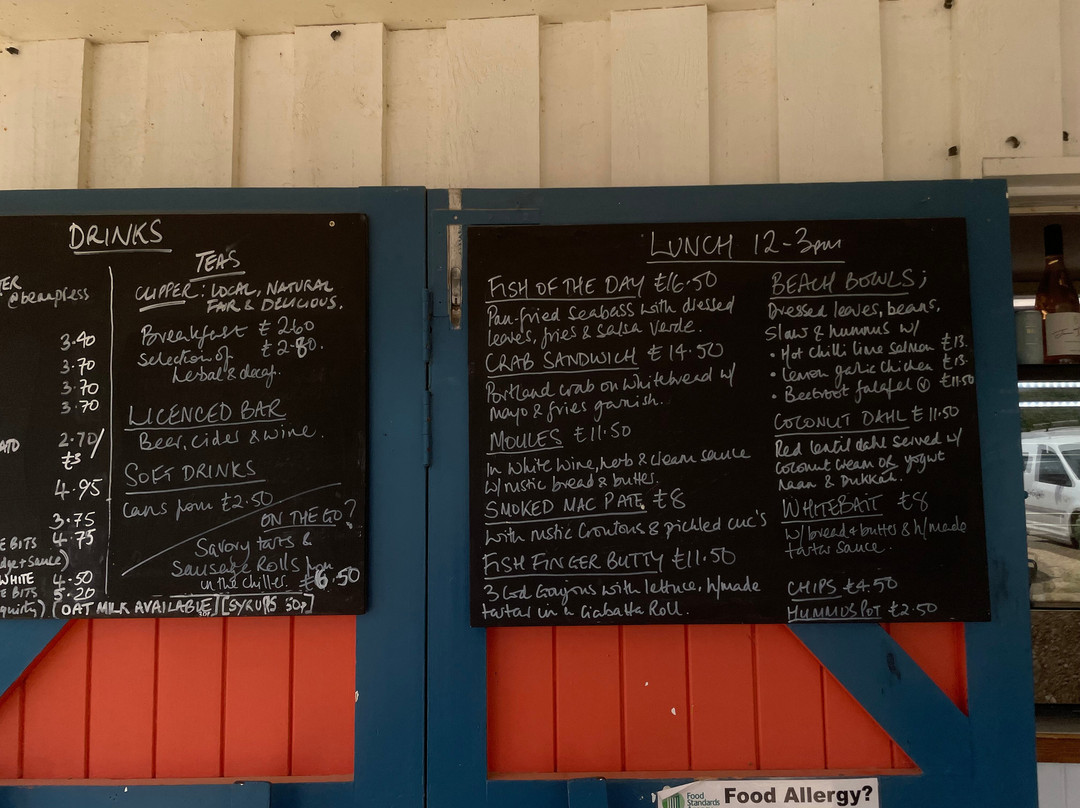 DRINKS
TER
@beanpress
3.40
3.70
3.70
3.70
ATO 2.70/
£3
4.95
3.75
E BITS 4.75
dge + sauce)
WHITE 4.50
E BITS 5.20
TEAS
CLIPPER: LOCAL, NATURAL
FAIR & DELICIOUS.
Breakfast £2.60
Selection of £2.80.
herbal & decaf.
LICENCED BAR
Beer, cides & wine.
SOFT DRINKS
cans from £2.50
ON THE GO?
Savory tarts &
Sausage Rolls from
in the chiller. £6.50
(OAT MILK AVAILABLE) [SYRUPS 50p]
LUNCH 12-3pm
FISH OF THE DAY £16.50
Pan-fried seabass with dressed
leaves, fries & salsa verde.
CRAB SANDWICH £14.50
Portland crab on white bread w/
mayo & fries garnish.
MOULES £11.50
In white wine, herb & cream sauce
w/ rustic bread & butter.
SMOKED MAC PATE £8
with rustic croutons & pickled cuc's
FISH FINGER BUTTY £11.50
3 cod goujons with lettuce, h/made
tartar in a Ciabatta Roll.
BEACH BOWLS;
Dressed leaves, beans,
Slaw & hummus w/
• Hot chilli lime salmon £13.
• Lemon garlic chicken £13.
• Beetroot falafel Ⓥ £11.50
COCONUT DAHL £11.50
Red lentil dahl served w/
coconut cream or yogurt
naan & Dukkah.
WHITEBAIT £8
w/ bread & butter & h/made
tartar sauce.
CHIPS £4.50
HUMMUS POT £2.50
Food
Standards
Food Allergy?